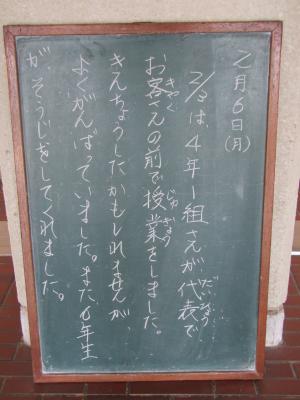 2月6日(月)
2/3は、4年1組さんが代表で
だいひょう
お客さんの前で授業をしました。
きゃく
じゅぎょう
きんちょうしたかもしれませんが、
よくがんばっていました。また、6年生
がそうじをしてくれました。